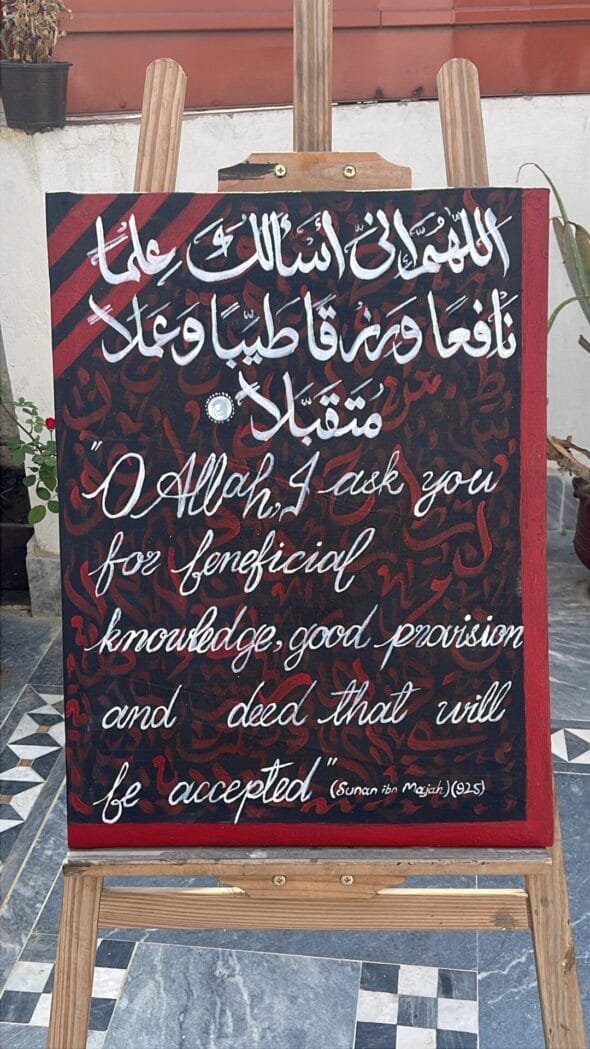 اللهُمَّ انىِّ أسْأَلُكَ عِلمًا
نَافِعًا وَرِزْقًا طَيِّبًا وَعَمَلاً
مُتَقَبَّلاً
"O Allah, I ask you
for beneficial
knowledge, good provision
and deed that will
be accepted" (Sunan ibn Majah)(925)